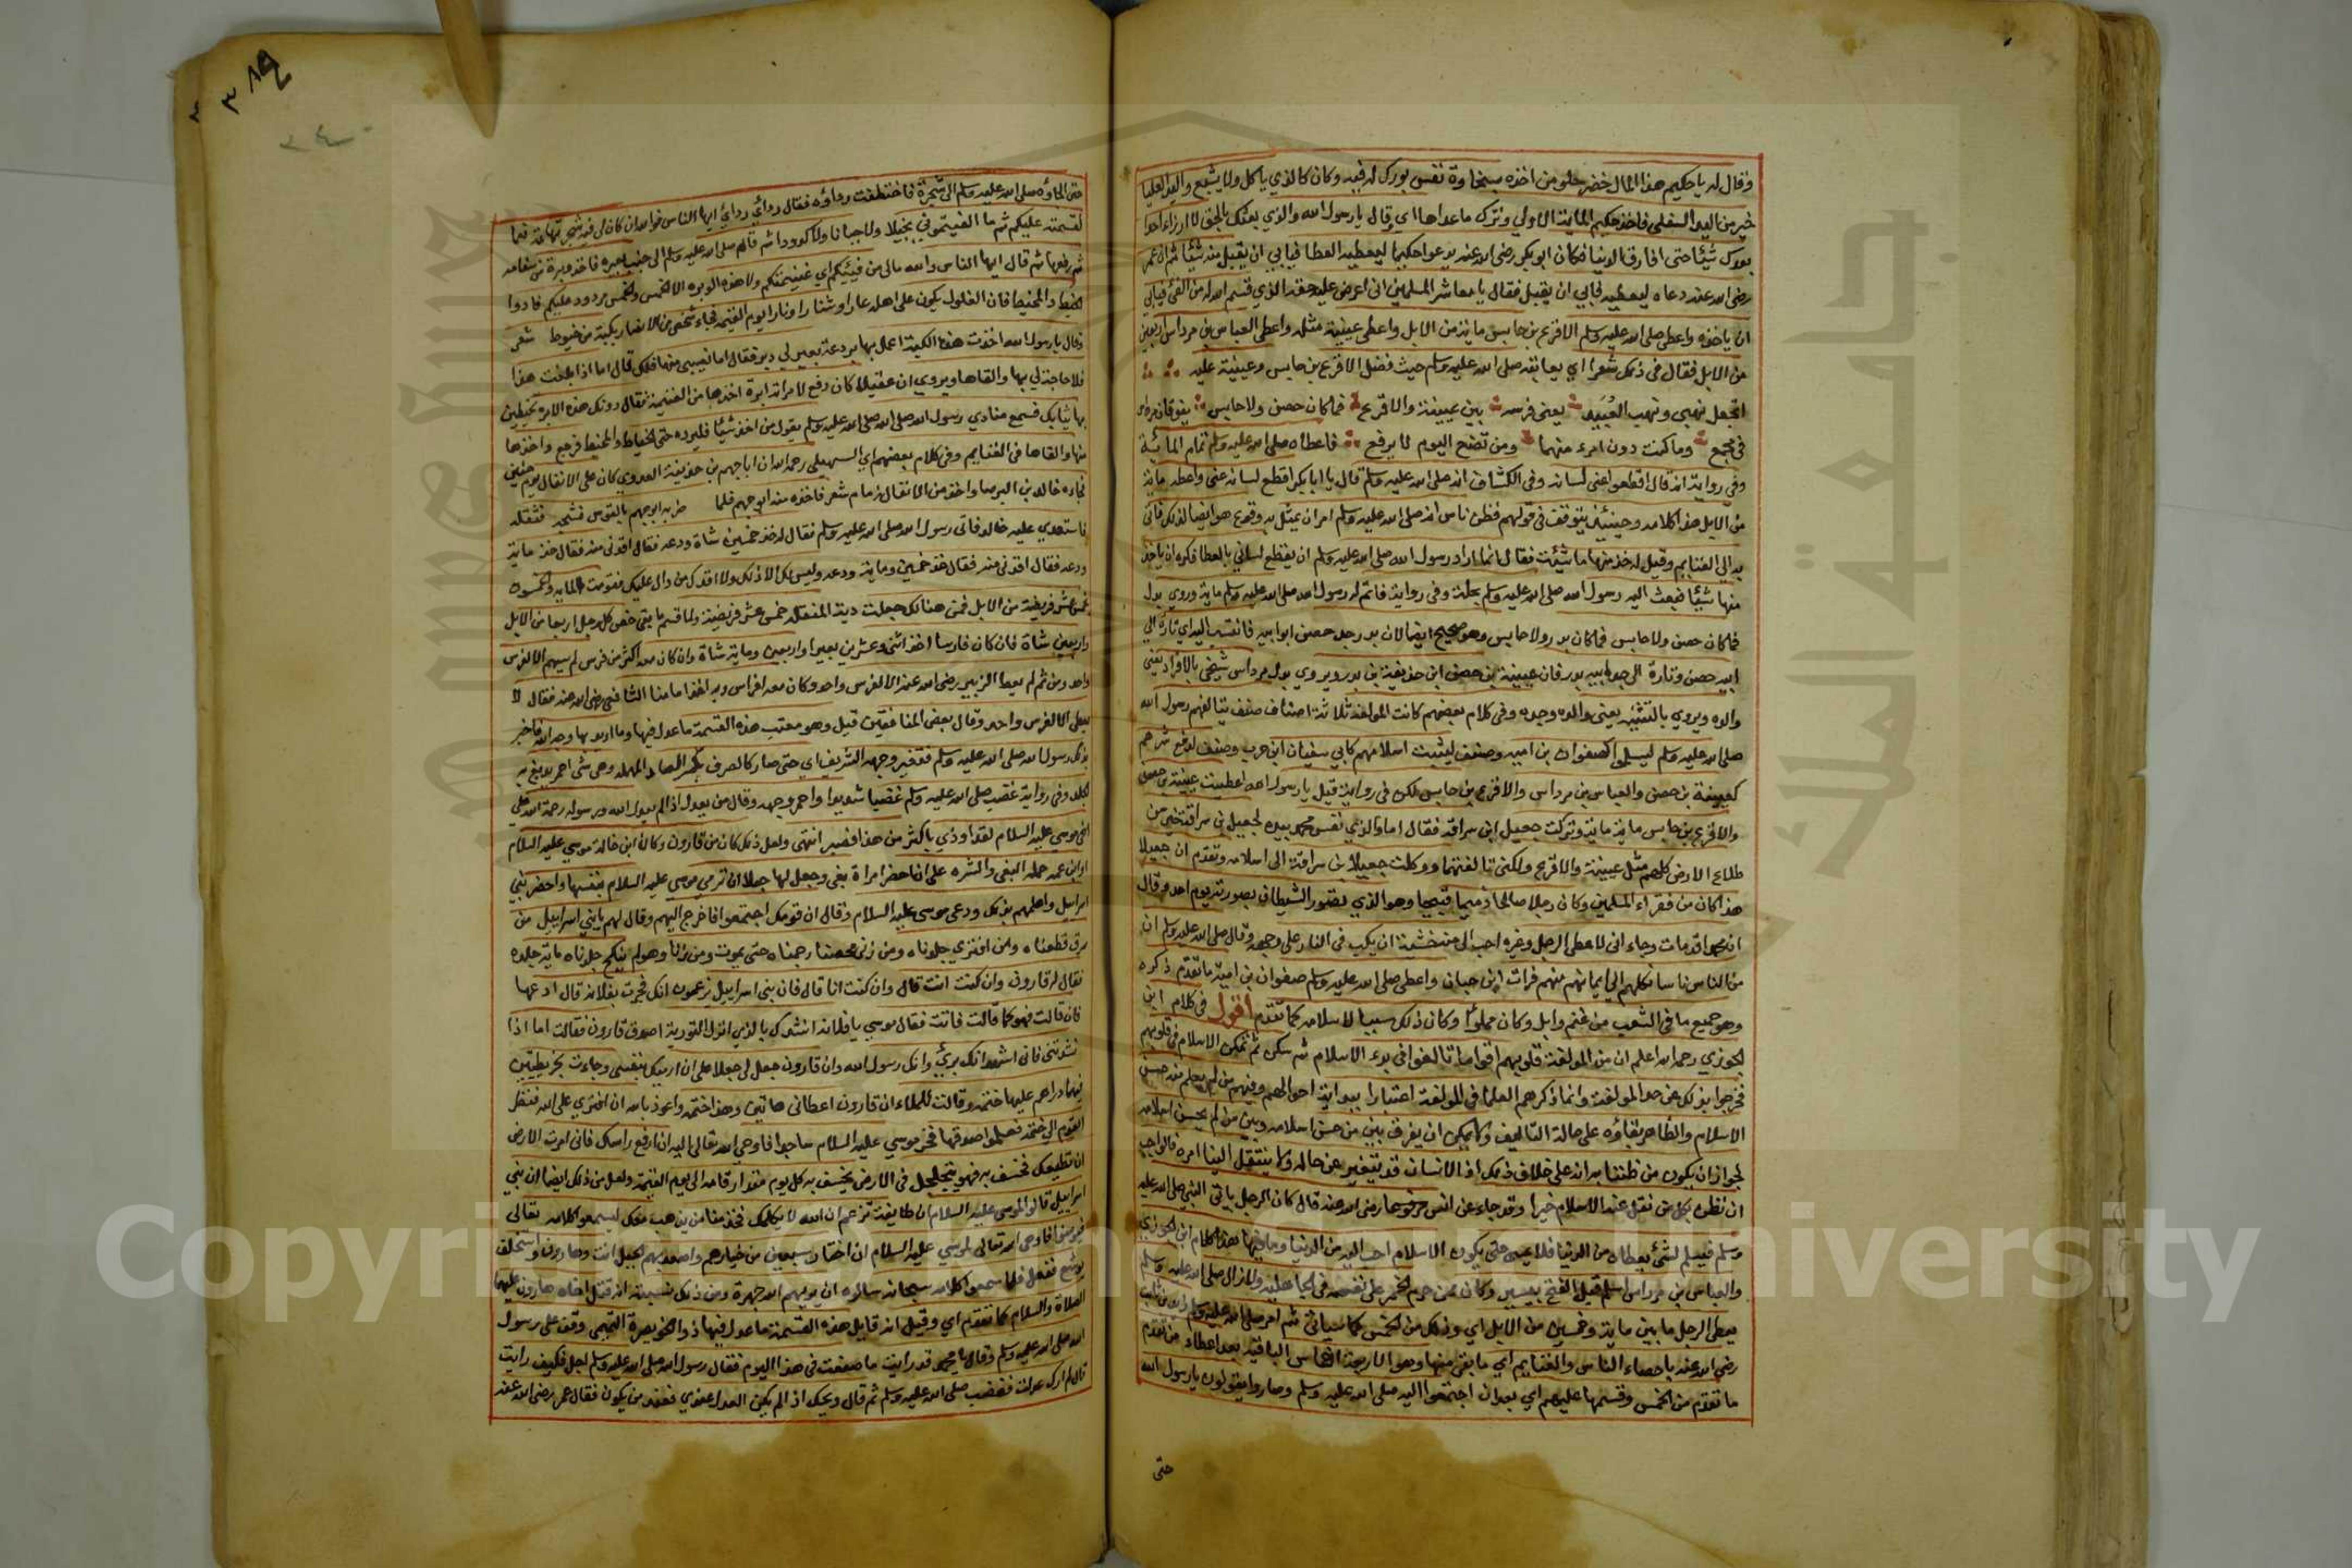 وقال له يا حكيم هذا المال خضر حلو من اخذه بسخاوة نفس بورك له فيه وكان كالذي ياكل ولا يشبع واليد العليا
خير من اليد السفلي فاخذ حكيم الماية الاولي وترك ما عداها اي وقال يا رسول الله والذي بعثك بالحق لا ارزاء احدا
بعدك شيئا حتى افارق الدنيا فكان ابو بكر رضي الله عنه يدعوا حكيما ليعطيه العطا فيابي ان يقبل منه شيئا ثم ان عمر
رضي الله عنه دعاه ليعطيه فابي ان يقبل فقال يا معاشر المسلمين اني اعرض عليه حقه الذي قسم الله له من الفئ فيابي
ان ياخذه واعطى صلى الله عليه وسلم الاقرع بن حابس ماية من الابل واعطى عيينة مثله واعطى العباس بن مرداس اربعين
من الابل فقال في ذلك شعرا اي يعاتبه صلى الله عليه وسلم حيث فضل الاقرع بن حابس وعيينة عليه
اتجعل نهبي ونهب العُبَيد يعنى فرسه بين عيينة والاقرع فما كان حصن ولا حابس يفوقان مرداس
في مجمع وما كنت دون امرء منهما ومن تضع اليوم لا يرفع فاعطاه صلى الله عليه وسلم تمام المائية
وفي رواية انه قال اقطعوا عني لسانه وفي الكشاف انه صلى الله عليه وسلم قال يا ابا بكر اقطع لسانه عني واعطه ماية
من الابل هذا كلامه وحينئذ يتوقف في قولهم فظن ناس انه صلى الله عليه وسلم امر ان يمثل به وفزع هو ايضا لذلك فاتى
به الي الغنايم وقيل له خذ منها ما شئت فقال انما اراد رسول الله صلى الله عليه وسلم ان يقطع لساني بالعطا فكره ان ياخذ
منها شيئا فبعث اليه رسول الله صلى الله عليه وسلم بحلة وفي رواية فاتم له رسول الله صلى الله عليه وسلم ماية وروي بدل
فما كان حصن ولا حابس فما كان بدر ولا حابس وهو صحيح ايضا لان بدر جد حصن ابو ابيه فانتسب اليه اي تارة الي
ابيه حصن وتارة الى جد ابيه بدر فان عيينة بن حصن ابن حذيفة بن بدر ويروي بدل مرداس شيخي بالافراد يعني
والده ويروي بالتثنية يعنى والده وجده وفي كلام بعضهم كانت المولفة ثلاثة اصناف صنف يتالفهم رسول الله
صلى الله عليه وسلم ليسلموا كصفوان بن امية وصنف ليثبت اسلامهم كابي سفيان ابن حرب وصنف لدفع شرهم
كعيينة بن حصن والعباس بن مرداس والاقرع بن حابس لكن في رواية قيل يا رسول الله اعطيت عيينة بن حصن
والاقرع بن حابس ماية ماية وتركت جعيل ابن سراقة فقال اما والذي نفس محمد بيده لجعيل بن سراقة خير من
طلاع الارض كلهم مثل عيينة والاقرع ولكني تالفتهما ووكلت جعيلا بن سراقة الى اسلامه وتقدم ان جعيلا
هذا كان من فقراء المسلمين وكان رجلا صالحا دميما قبيحا وهو الذي تصور الشيطان بصورته يوم احد وقال
ان محمدا قد مات وجاء اني لاعطي الرجل وغيره احب الي منه خشية ان يكب في النار على وجهه وقال صلى الله عليه وسلم ان
من الناس ناسا نكلهم الي ايمانهم منهم فرات ابن حيان واعطى صلى الله عليه وسلم صفوان بن امية ما تقدم ذكره
وهو جميع ما في الشعب من غنم وابل وكان مملوا وكان ذلك سببا لاسلامه كما تقدم اقول في كلام ابن
الجوزي رحمه الله اعلم ان من المولفة قلوبهم اقواما تالفوا في بدء الاسلام ثم تمكن الاسلام في قلوبهم
فخرجوا بذلك عن حد المولفة وانما ذكرهم العلما في المولفة اعتبارا ببداية احوالهم وفيهم من لم يعلم منه حسن
الاسلام والظاهر بقاؤه على حالة التاليف ولا يمكن ان يفرق بين من حسن اسلامه وبين من لم يحسن اسلامه
لجواز ان يكون من ظننا به انه على خلاف ذلك اذ الانسان قد يتغير عن حاله ولا ينتقل الينا امره فالواجب
ان نظن بكل من نقل عنه الاسلام خيرا وقد جاء عن انس رضي الله عنه قال كان الرجل ياتي النبي صلى الله عليه
وسلم فيسلم لشئ يعطاه من الدنيا فلا يمسي حتى يكون الاسلام احب اليه من الدنيا وما فيها هذا كلام ابن الجوزي
والعباس بن مرداس اسلم قبل الفتح بيسير وكان ممن حرم الخمر على نفسه في الجاهلية ولا زال صلى الله عليه وسلم
يعطى الرجل ما بين ماية وخمسين من الابل اي وذلك من الخمس كما سياتي ثم امر صلى الله عليه وسلم زيد بن ثابت
رضي الله عنه باحصاء الناس والغنايم اي ما بقي منها وهو الاربعة اخماس الباقية بعد اعطاء من تقدم
ما تقدم من الخمس وقسمها عليهم اي بعد ان اجتمعوا اليه صلى الله عليه وسلم وصاروا يقولون يا رسول الله
حتى
حتى الجاؤه صلى الله عليه وسلم الى شجرة فاختطفت رداؤه فقال ردائي ردائي ايها الناس فوالله ان كان لي فيه شجر تهامة نعما
لقسمته عليكم ثم ما الفيتموني بخيلا ولا جبانا ولا كدودا ثم قام صلى الله عليه وسلم الى جنب بعيره فاخذ وبرة من سنامه
ثم رفعها ثم قال ايها الناس والله مالي من فيئكم اي غنيمتكم ولا هذه الوبره الا الخمس والخمس مردود عليكم فادوا
الخيط والمخيط فان الغلول يكون على اهله عارا وشنارا ونارا يوم القيمة فجاء شخص من الانصار بكبة من خيوط شعر
وقال يا رسول الله اخذت هذه الكبة اعمل بها بردعة بعير لي دبر فقال اما نصيبي منها فلك قال اما اذا بلغت هذا
فلا حاجة لي بها والقاها ويروي ان عقيلا كان دفع لامراته ابرة اخذها من الغنيمة فقال دونك هذه الابره تخيطين
بها ثيابك فسمع منادي رسول الله صلى الله عليه وسلم يقول من اخذ شيئا فليرده حتى الخياط والمخيط فرجع واخذها
منها والقاها في الغنايم وفي كلام بعضهم اي السهيلي رحمه الله ان ابا جهم بن حذيفة العدوي كان على الانفال يوم حنين
فجاءه خالد بن البرصا واخذ من الانفال زمام شعر فاخذه منه ابو جهم فلما ضربه ابو جهم بالقوس فشجه فنقله
فاستعدي عليه خالد فاتى رسول الله صلى الله عليه وسلم فقال له خذ خمسين شاة ودعه فقال اقدني منه فقال خذ ماية
ودعه فقال اقدني منه فقال خذ خمسين وماية ودعه وليس لك الا ذلك ولا اقدك من وال عليك فقومت الماية والخمسون
بخمس عشر فريضة من الابل فمن هنالك جعلت دية المنقلة خمس عشر فريضة ولما قسم ما بقى خص كل رجل اربعا من الابل
واربعين شاة فان كان فارسا اخذ اثني وعشرين بعيرا واربعين وماية شاة وان كان معه اكثر من فرس لم يسهم الا لفرس
واحد ومن ثم لم يعط الزبير رضي الله عنه الا لفرس واحد وكان معه افراس وبه اخذ امامنا الشافعي رضي الله عنه فقال لا
يعطى الا لفرس واحد وقال بعض المنافقين قيل وهو معتب هذه القسمة ما عدل فيها وما اريد بها وجه الله فاخبر
بذلك رسول الله صلى الله عليه وسلم فتغير وجهه الشريف اي حتى صار كالصرف بكسر الصاد المهمله وهي شى احمر يدبغ به
الجلد وفي رواية غضب صلى الله عليه وسلم غضبا شديدا واحمر وجهه وقال من يعدل اذا لم يعدل الله ورسوله رحمة الله على
اخي موسي عليه السلام لقد اوذي باكثر من هذا فصبر انتهى ولعل ذلك كان من قارون وكان ابن خالة موسي عليه السلام
او ابن عمه حمله البغي والشره على ان احضر امراة بغي وجعل لها جعلا ان ترمي موسي عليه السلام بنفسها واحضر بني
اسراييل واعلمهم بذلك ودعى موسى عليه السلام وقال ان قومك اجتمعوا فاخرج اليهم وقال لهم يا بني اسراييل من
سرق قطعناه ومن افتري جلدناه ومن زنى محصنا رجمناه حتى يموت ومن زنا وهو لم ينكح جلدناه ماية جلده
فقال له قارون وان كنت انت قال وان كنت انا قال فان بنى اسراييل يزعمون انك فجرت بفلانه قال ادعها
فان قالت فهو كما قالت فاتت فقال موسي يا فلانه انشدك بالذي انزل التورية اصدق قارون فقالت اما اذا
نشدتني فاني اشهد انك بريئ وانك رسول الله وان قارون جعل لي جعلا على ان ارميك بنفسي وجاءت بخريطتين
فيهما دراهم عليها ختمه وقالت للملاء ان قارون اعطاني هاتين وهذا ختمه واعوذ بالله ان افتري على الله فنظر
القوم الى ختمه فعلموا صدقها فخر موسي عليه السلام ساجدا فاوحى الله تعالى اليه ان ارفع راسك فاني امرت الارض
ان تطيعك فخسف به فهو يتجلجل في الارض يخسف به كل يوم مقدار قامه الى يوم القيمة ولعل من ذلك ايضا ان بني
اسراييل قالوا لموسى عليه السلام ان طايفة تزعم ان الله لا يكلمك فخذ منا من يذهب معك ليسمعوا كلامه تعالى
فيومنوا فاوحى الله تعالى لموسي عليه السلام ان اختار سبعين من خيارهم واصعد بهم الجبل انت وهارون واستخلف
يوشع ففعل فلما سمعوا كلامه سبحانه سالوه ان يريهم الله جهرة ومن ذلك نسبته انه قتل اخاه هارون عليهما
الصلاة والسلام كما تقدم اي وقيل انه قايل هذه القسمة ما عدل فيها ذو الخويصرة التميمي وقف على رسول
الله صلى الله عليه وسلم وقال يا محمد قد رايت ما صنعت في هذا اليوم فقال رسول الله صلى الله عليه وسلم اجل فكيف رايت
قال لم ارك عدلت فغضب صلى الله عليه وسلم ثم قال ويحك اذا لم يكن العدل عندي فعند من يكون فقال عمر رضي الله عنه
جامعة الملك سعود
Copyright © King Saud University